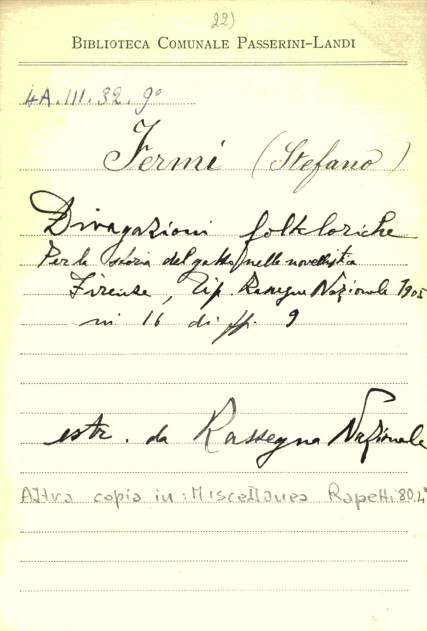 22)
BIBLIOTECA COMUNALE PASSERINI-LANDI
4A.III.32.9°
Fermi (Stefano)
Divagazioni folkloriche
Per la storia del gatto nelle novellistica
Firenze, Tip. Rassegna Nazionale 1905
in 16 di pp. 9
estr. da Rassegna Nazionale
Altra copia in: Miscellanea Rapetti 80.4°